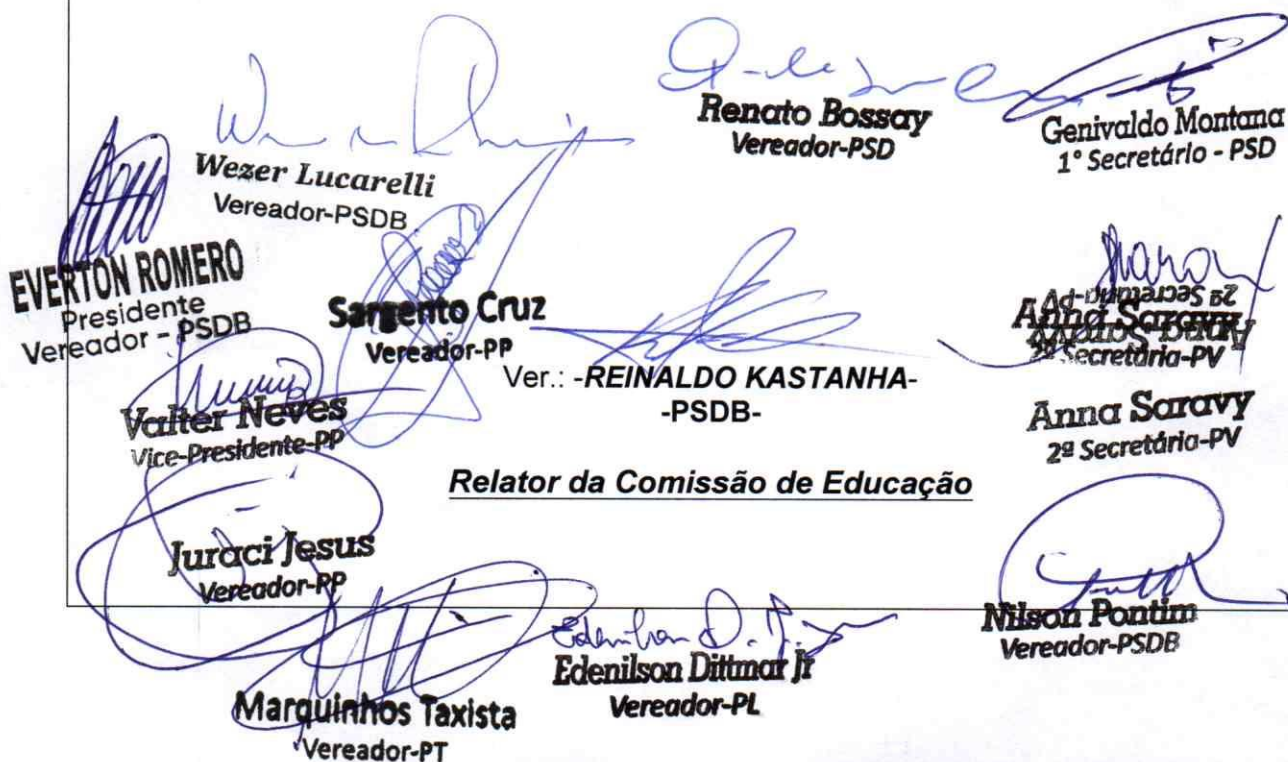 Renato Bossay
Vereador-PSD
Genivaldo Montana
1º Secretário - PSD
Wezer Lucarelli
Vereador-PSDB
EVERTON ROMERO
Presidente
Vereador - PSDB
Sargento Cruz
Vereador-PP
Ver.: -REINALDO KASTANHA-
-PSDB-
Anna Saravy
2ª Secretária-PV
Anna Saravy
2ª Secretária-PV
Valter Neves
Vice-Presidente-PP
Relator da Comissão de Educação
Juraci Jesus
Vereador-PP
Nilson Pontim
Vereador-PSDB
Edenilson Dittmar Jr
Vereador-PL
Marquinhos Taxista
Vereador-PT